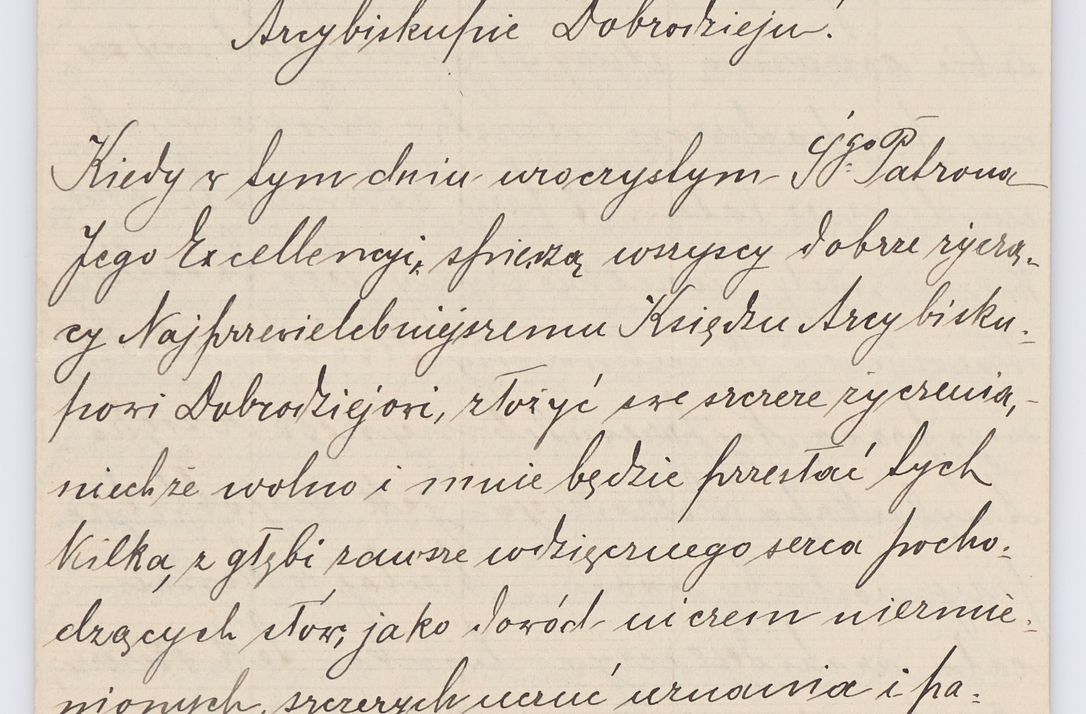 Arcybiskupie Dobrodzieju!
Kiedy w tym dniu uroczystym Śgo Patrona
Jego Excellencyi, spieszą wszyscy dobrze życzą-
cy Najprzewielebniejszemu Księdzu Arcybisku-
powi Dobrodziejowi, złożyć swe szczere życzenia,-
niechże wolno i mnie będzie przesłać tych
kilka, z głębi zawsze wdzięcznego serca pocho-
dzących słów, jako dowód niczem niezmie-
nionych, szczerych uczuć uznania i pa-